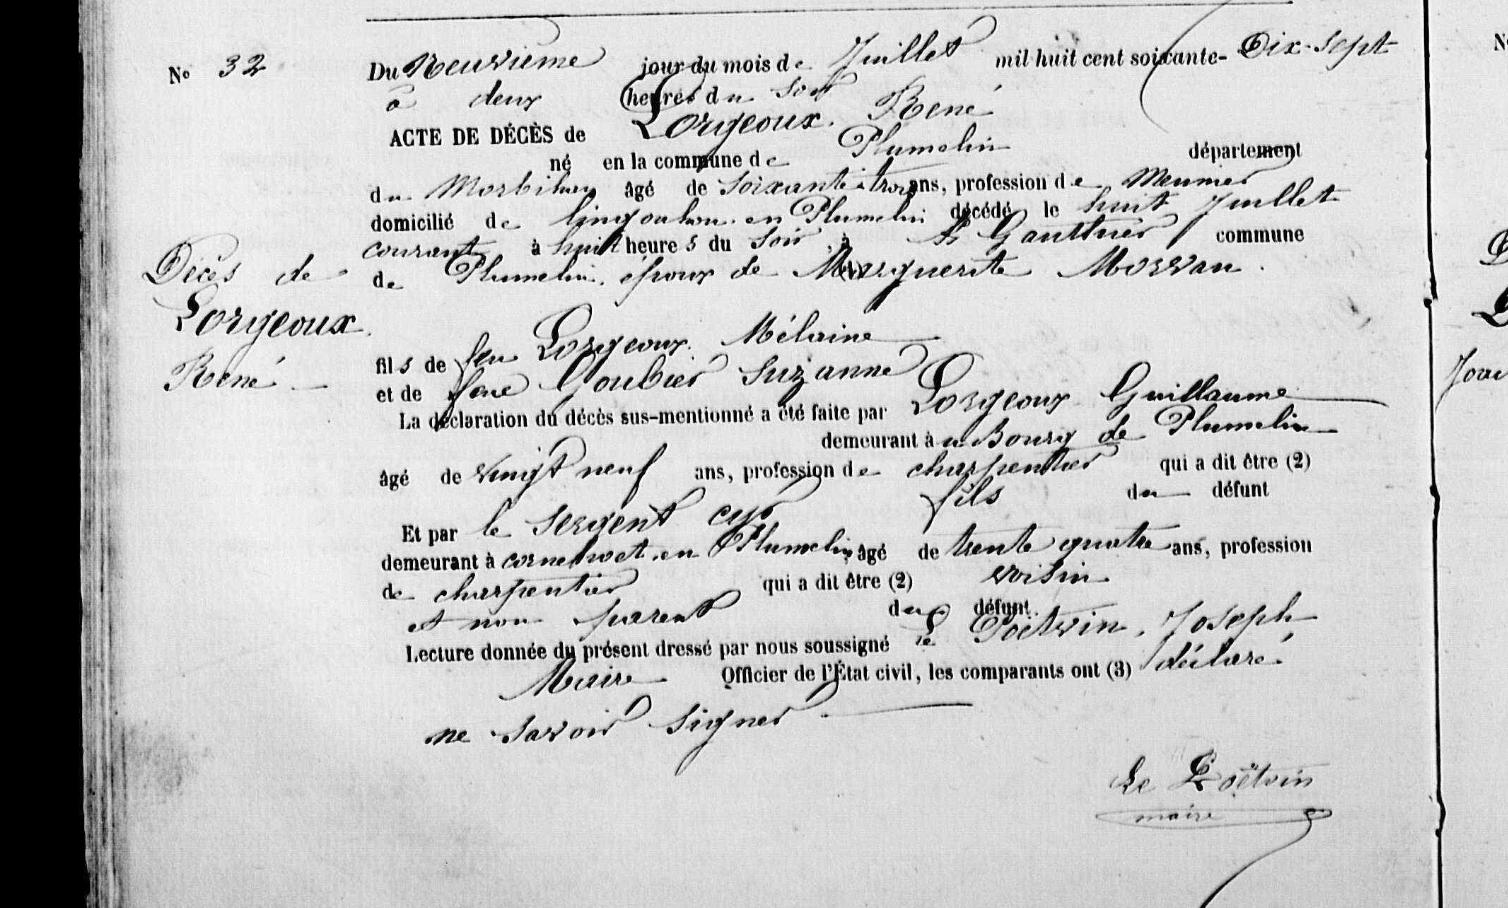 N° 32
Du Neuvième jour du mois de Juillet mil huit cent soixante-Dix-sept
à deux heures du soir
ACTE DE DÉCÈS de Lorgeoux René
né en la commune de Plumelin département
du Morbihan âgé de soixante-trois ans, profession de Meunier
domicilié de en Plumelin décédé le huit Juillet
courant à huit heures du soir, à Gauthier commune
de Plumelin. époux de Marguerite Morvan.
Décès de
Lorgeoux
René
fils de feu Lorgeoux Mélaine
et de feue Goubier Suzanne
La déclaration du décès sus-mentionné a été faite par Lorgeoux Guillaume
demeurant à au Bourg de Plumelin
âgé de vingt neuf ans, profession de charpentier qui a dit être (2)
fils du défunt
Et par le Sergent cyr
demeurant à en Plumelin, âgé de trente quatre ans, profession
de charpentier qui a dit être (2) voisin
et non parent du défunt.
Lecture donnée du présent dressé par nous soussigné Le Poëtvin, Joseph
Maire Officier de l'État civil, les comparants ont (3) déclaré
ne savoir signer
Le Poëtvin
maire
N
D
L